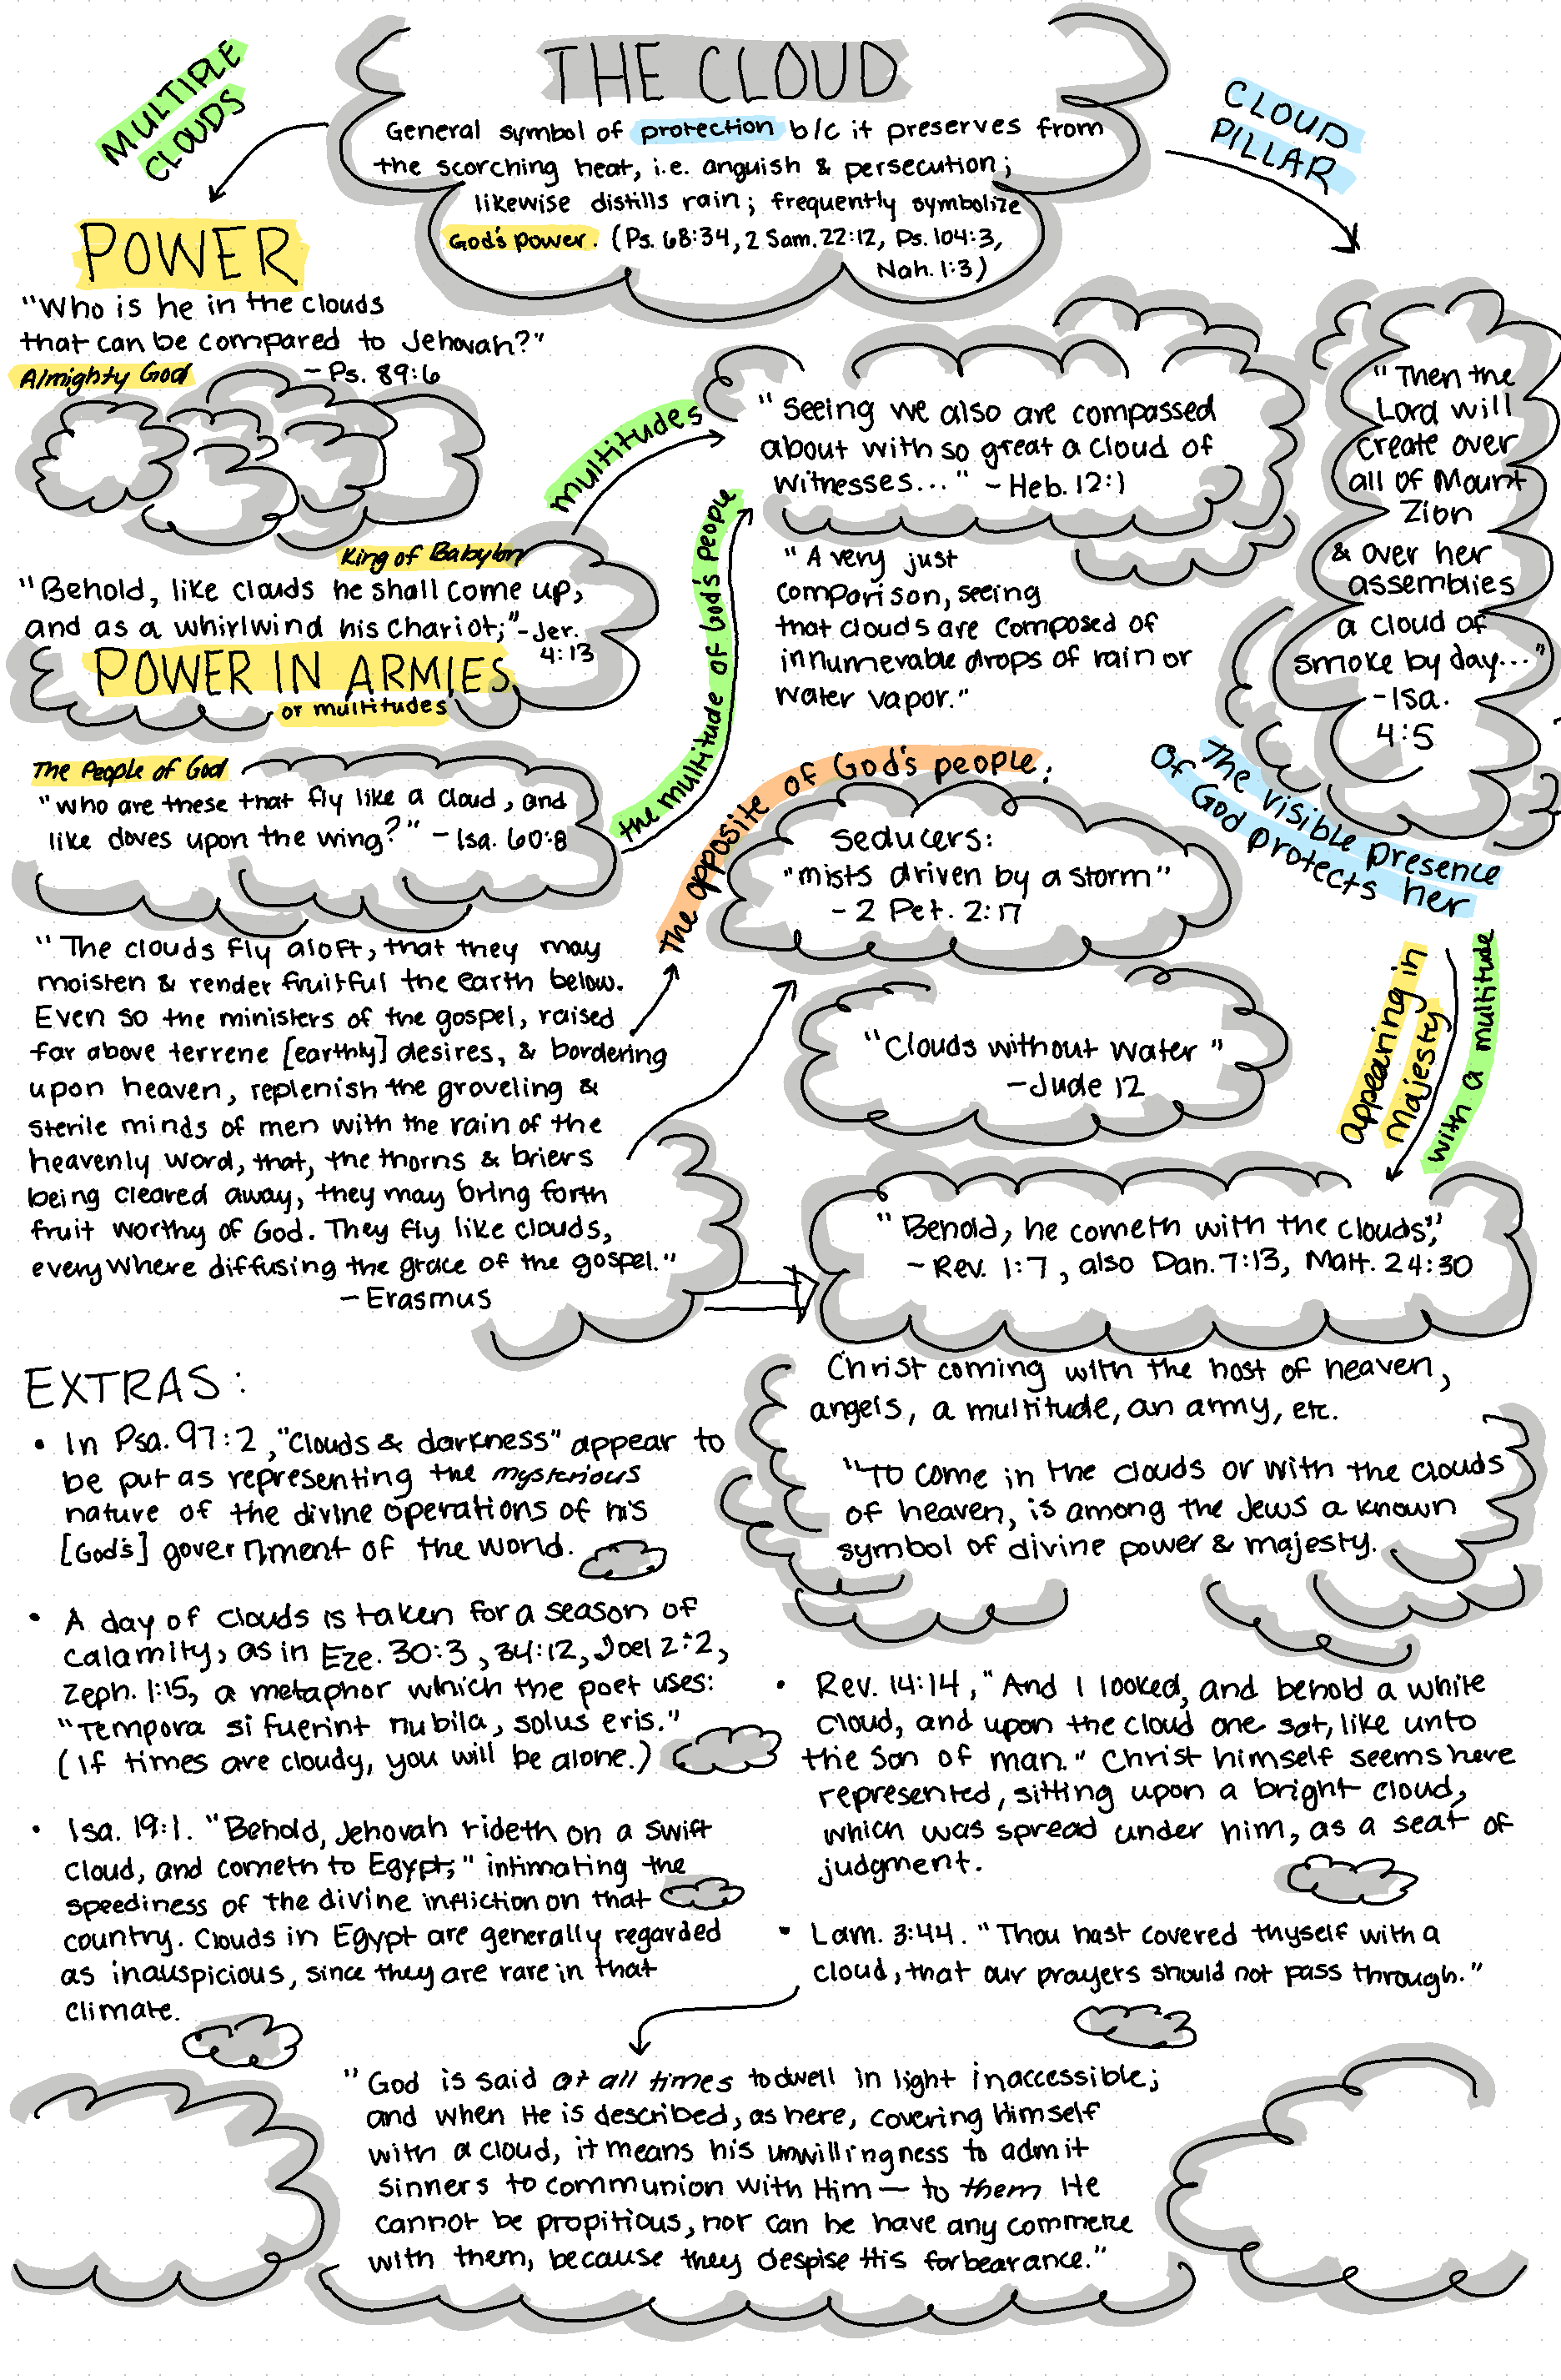 THE CLOUD
General symbol of protection b/c it preserves from
the scorching heat, i.e. anguish & persecution;
likewise distills rain; frequently symbolize
God's power. (Ps. 68:34, 2 Sam. 22:12, Ps. 104:3,
Nah. 1:3)
MULTIPLE
CLOUDS
CLOUD
PILLAR
POWER
"Who is he in the clouds
that can be compared to Jehovah?"
Almighty God
- Ps. 89:6
King of Babylon
"Behold, like clouds he shall come up,
and as a whirlwind his chariot;" - Jer.
4:13
POWER IN ARMIES
or multitudes
The People of God
"Who are these that fly like a cloud, and
like doves upon the wing?" - Isa. 60:8
"The clouds fly aloft, that they may
moisten & render fruitful the earth below.
Even so the ministers of the gospel, raised
far above terrene [earthly] desires, & bordering
upon heaven, replenish the groveling &
sterile minds of men with the rain of the
heavenly word, that, the thorns & briers
being cleared away, they may bring forth
fruit worthy of God. They fly like clouds,
everywhere diffusing the grace of the gospel."
- Erasmus
multitudes
the multitude of God's people
"Seeing we also are compassed
about with so great a cloud of
witnesses..." - Heb. 12:1
"A very just
comparison, seeing
that clouds are composed of
innumerable drops of rain or
water vapor."
the opposite of God's people:
seducers:
"mists driven by a storm"
- 2 Pet. 2:17
"Clouds without water"
- Jude 12
"Then the
Lord will
create over
all of Mount
Zion
& over her
assemblies
a cloud of
smoke by day..."
- Isa.
4:5
The visible presence
Of God protects her
appearing in
majesty
with a multitude
"Behold, he cometh with the clouds,"
- Rev. 1:7, also Dan. 7:13, Matt. 24:30
Christ coming with the host of heaven,
angels, a multitude, an army, etc.
"To come in the clouds or with the clouds
of heaven, is among the Jews a known
symbol of divine power & majesty.
EXTRAS:
• In Psa. 97:2, "Clouds & darkness" appear to
be put as representing the mysterious
nature of the divine operations of his
[God's] government of the world.
• A day of clouds is taken for a season of
calamity, as in Eze. 30:3, 34:12, Joel 2:2,
Zeph. 1:15, a metaphor which the poet uses:
"Tempora si fuerint nubila, solus eris."
(If times are cloudy, you will be alone.)
• Isa. 19:1. "Behold, Jehovah rideth on a swift
cloud, and cometh to Egypt;" intimating the
speediness of the divine infliction on that
country. Clouds in Egypt are generally regarded
as inauspicious, since they are rare in that
climate.
• Rev. 14:14, "And I looked, and behold a white
cloud, and upon the cloud one sat, like unto
the Son of man." Christ himself seems here
represented, sitting upon a bright cloud,
which was spread under him, as a seat of
judgment.
• Lam. 3:44. "Thou hast covered thyself with a
cloud, that our prayers should not pass through."
"God is said at all times to dwell in light inaccessible;
and when He is described, as here, covering Himself
with a cloud, it means his unwillingness to admit
sinners to communion with Him — to them He
cannot be propitious, nor can he have any commerce
with them, because they despise His forbearance."